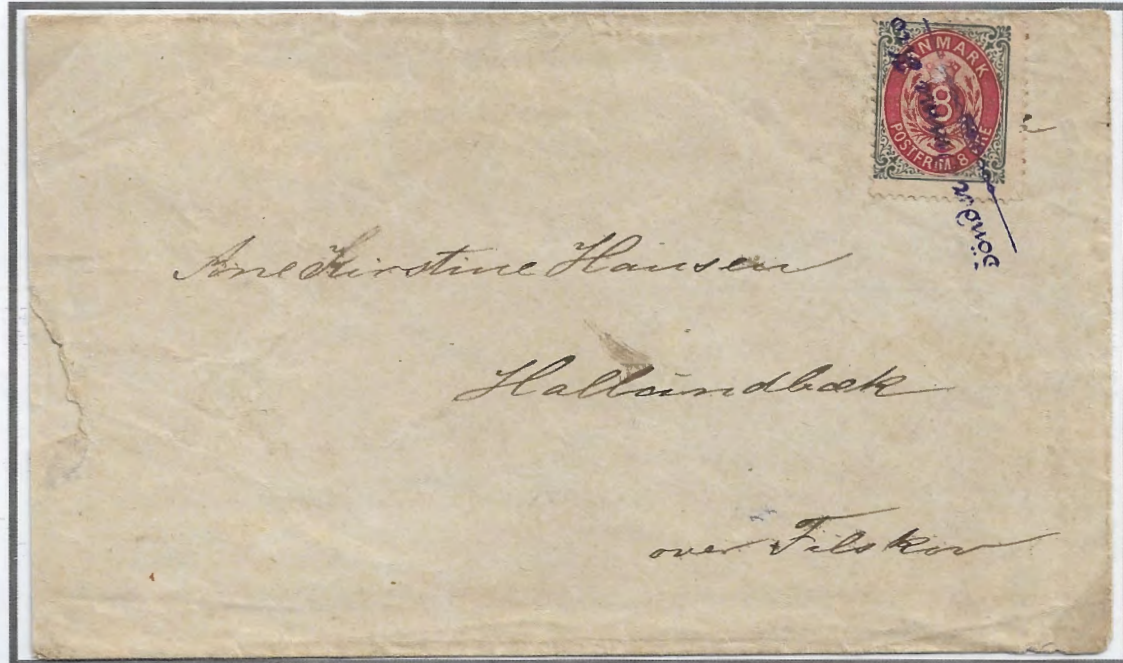 DANMARK
8
POSTFRIM. 8 ØRE
Ane Kirstine Hansen
Hallundbæk
over Filskov